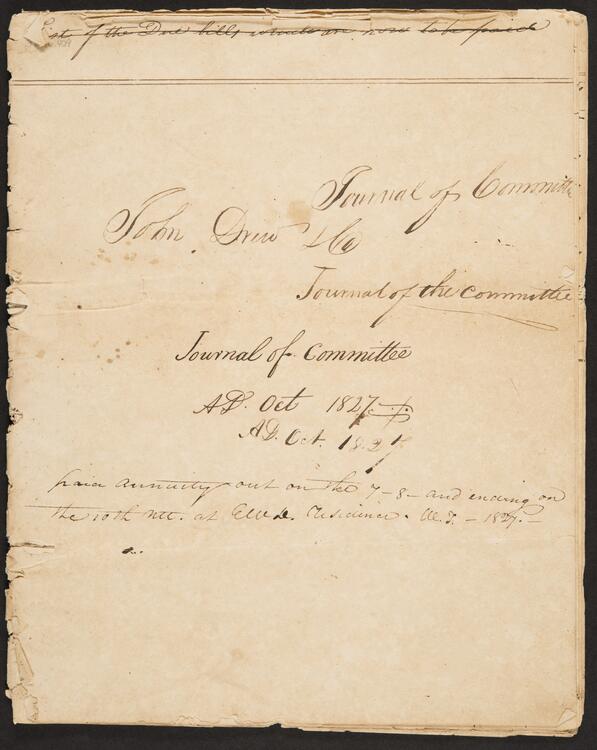 List of the Due bills which are now to be paid
Journal of Committe
John Drew & Co
Journal of the committee
Journal of Committee
AD. Oct 1827
AD. Oct. 1827
paid annuity out on the 7-8- and ending on
the 10th at residence. - 1827.-